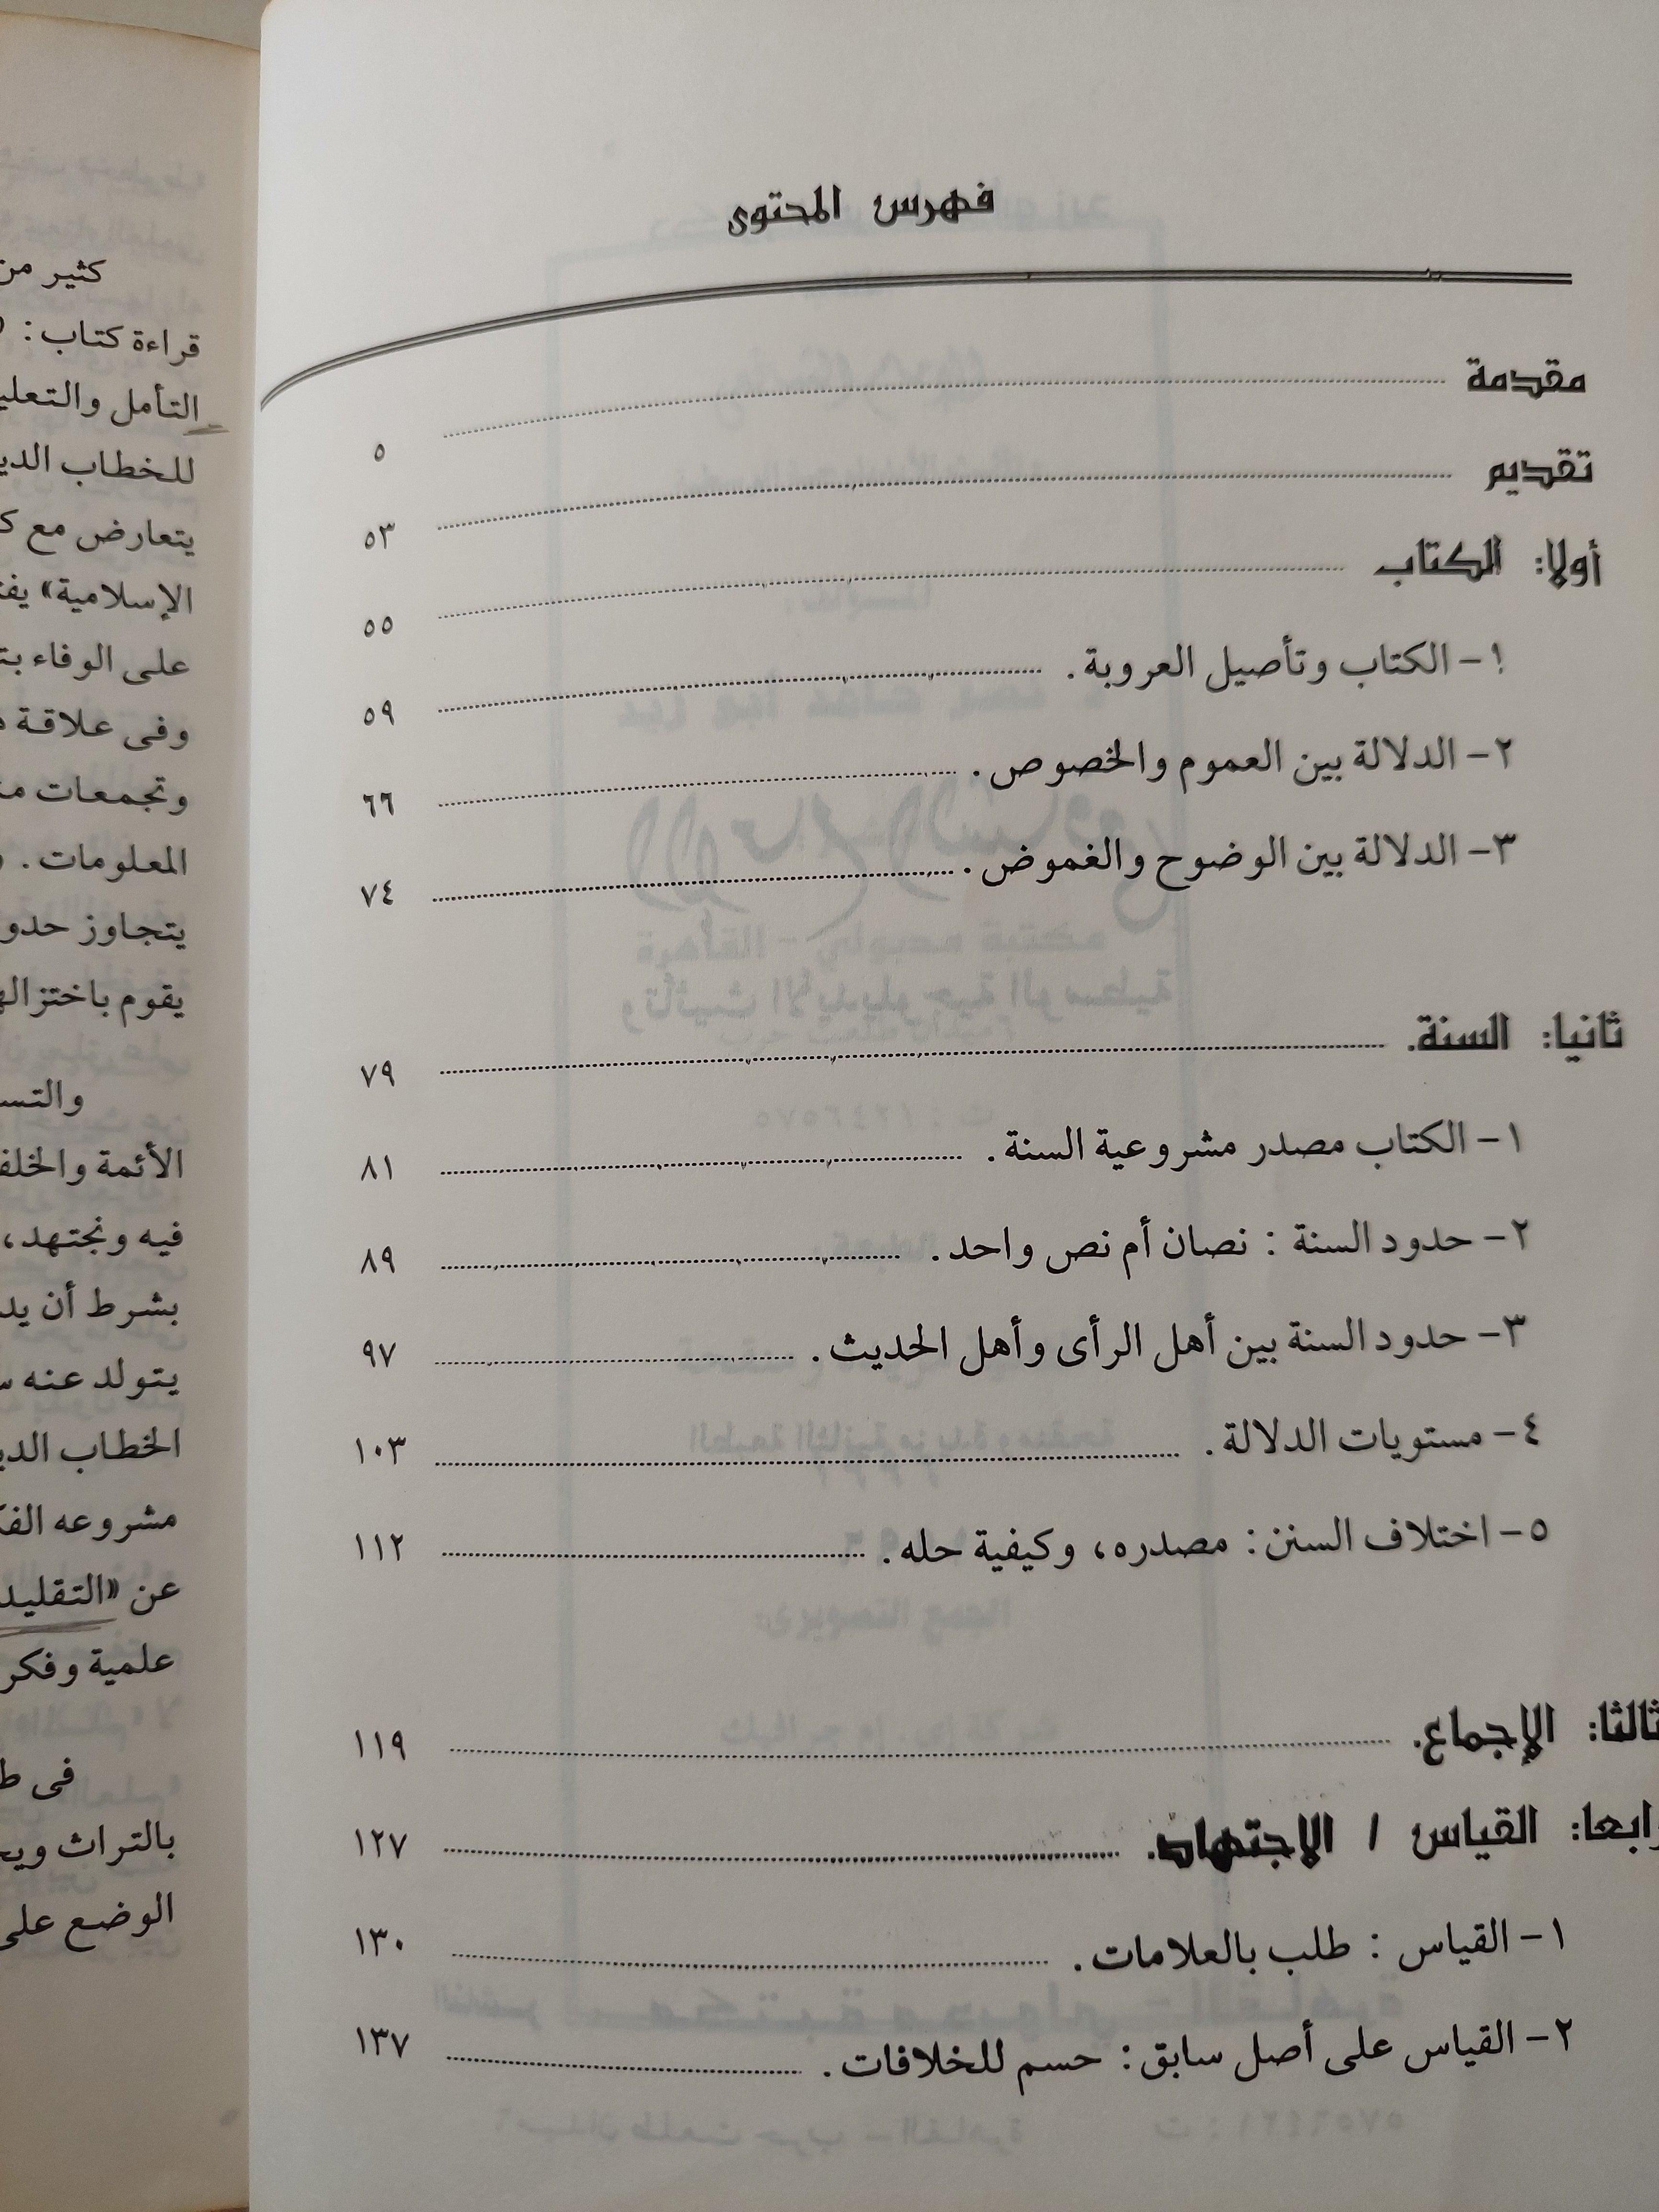 فهرس المحتوى
مقدمة ٥
تقديم ٥٣
أولا: الكتاب ٥٥
١- الكتاب وتأصيل العروبة. ٥٩
٢- الدلالة بين العموم والخصوص. ٦٦
٣- الدلالة بين الوضوح والغموض. ٧٤
ثانيا: السنة. ٧٩
١- الكتاب مصدر مشروعية السنة. ٨١
٢- حدود السنة: نصان أم نص واحد. ٨٩
٣- حدود السنة بين أهل الرأى وأهل الحديث. ٩٧
٤- مستويات الدلالة. ١٠٣
٥- اختلاف السنن: مصدره، وكيفية حله. ١١٢
ثالثا: الإجماع. ١١٩
رابعا: القياس / الاجتهاد. ١٢٧
١- القياس: طلب بالعلامات. ١٣٠
٢- القياس على أصل سابق: حسم للخلافات. ١٣٧
كثير من
قراءة كتاب:
التأمل
للخطاب
يتعارض مع
الإسلامية»
على الوفاء
وفى علاقة
وتجمعات
المعلومات.
يتجاوز
يقوم
الأئمة
فيه ونجتهد،
بشرط أن
يتولد عنه
الخطاب
مشروعه
عن «التقليد
علمية
فى
بالتراث
الوضع على